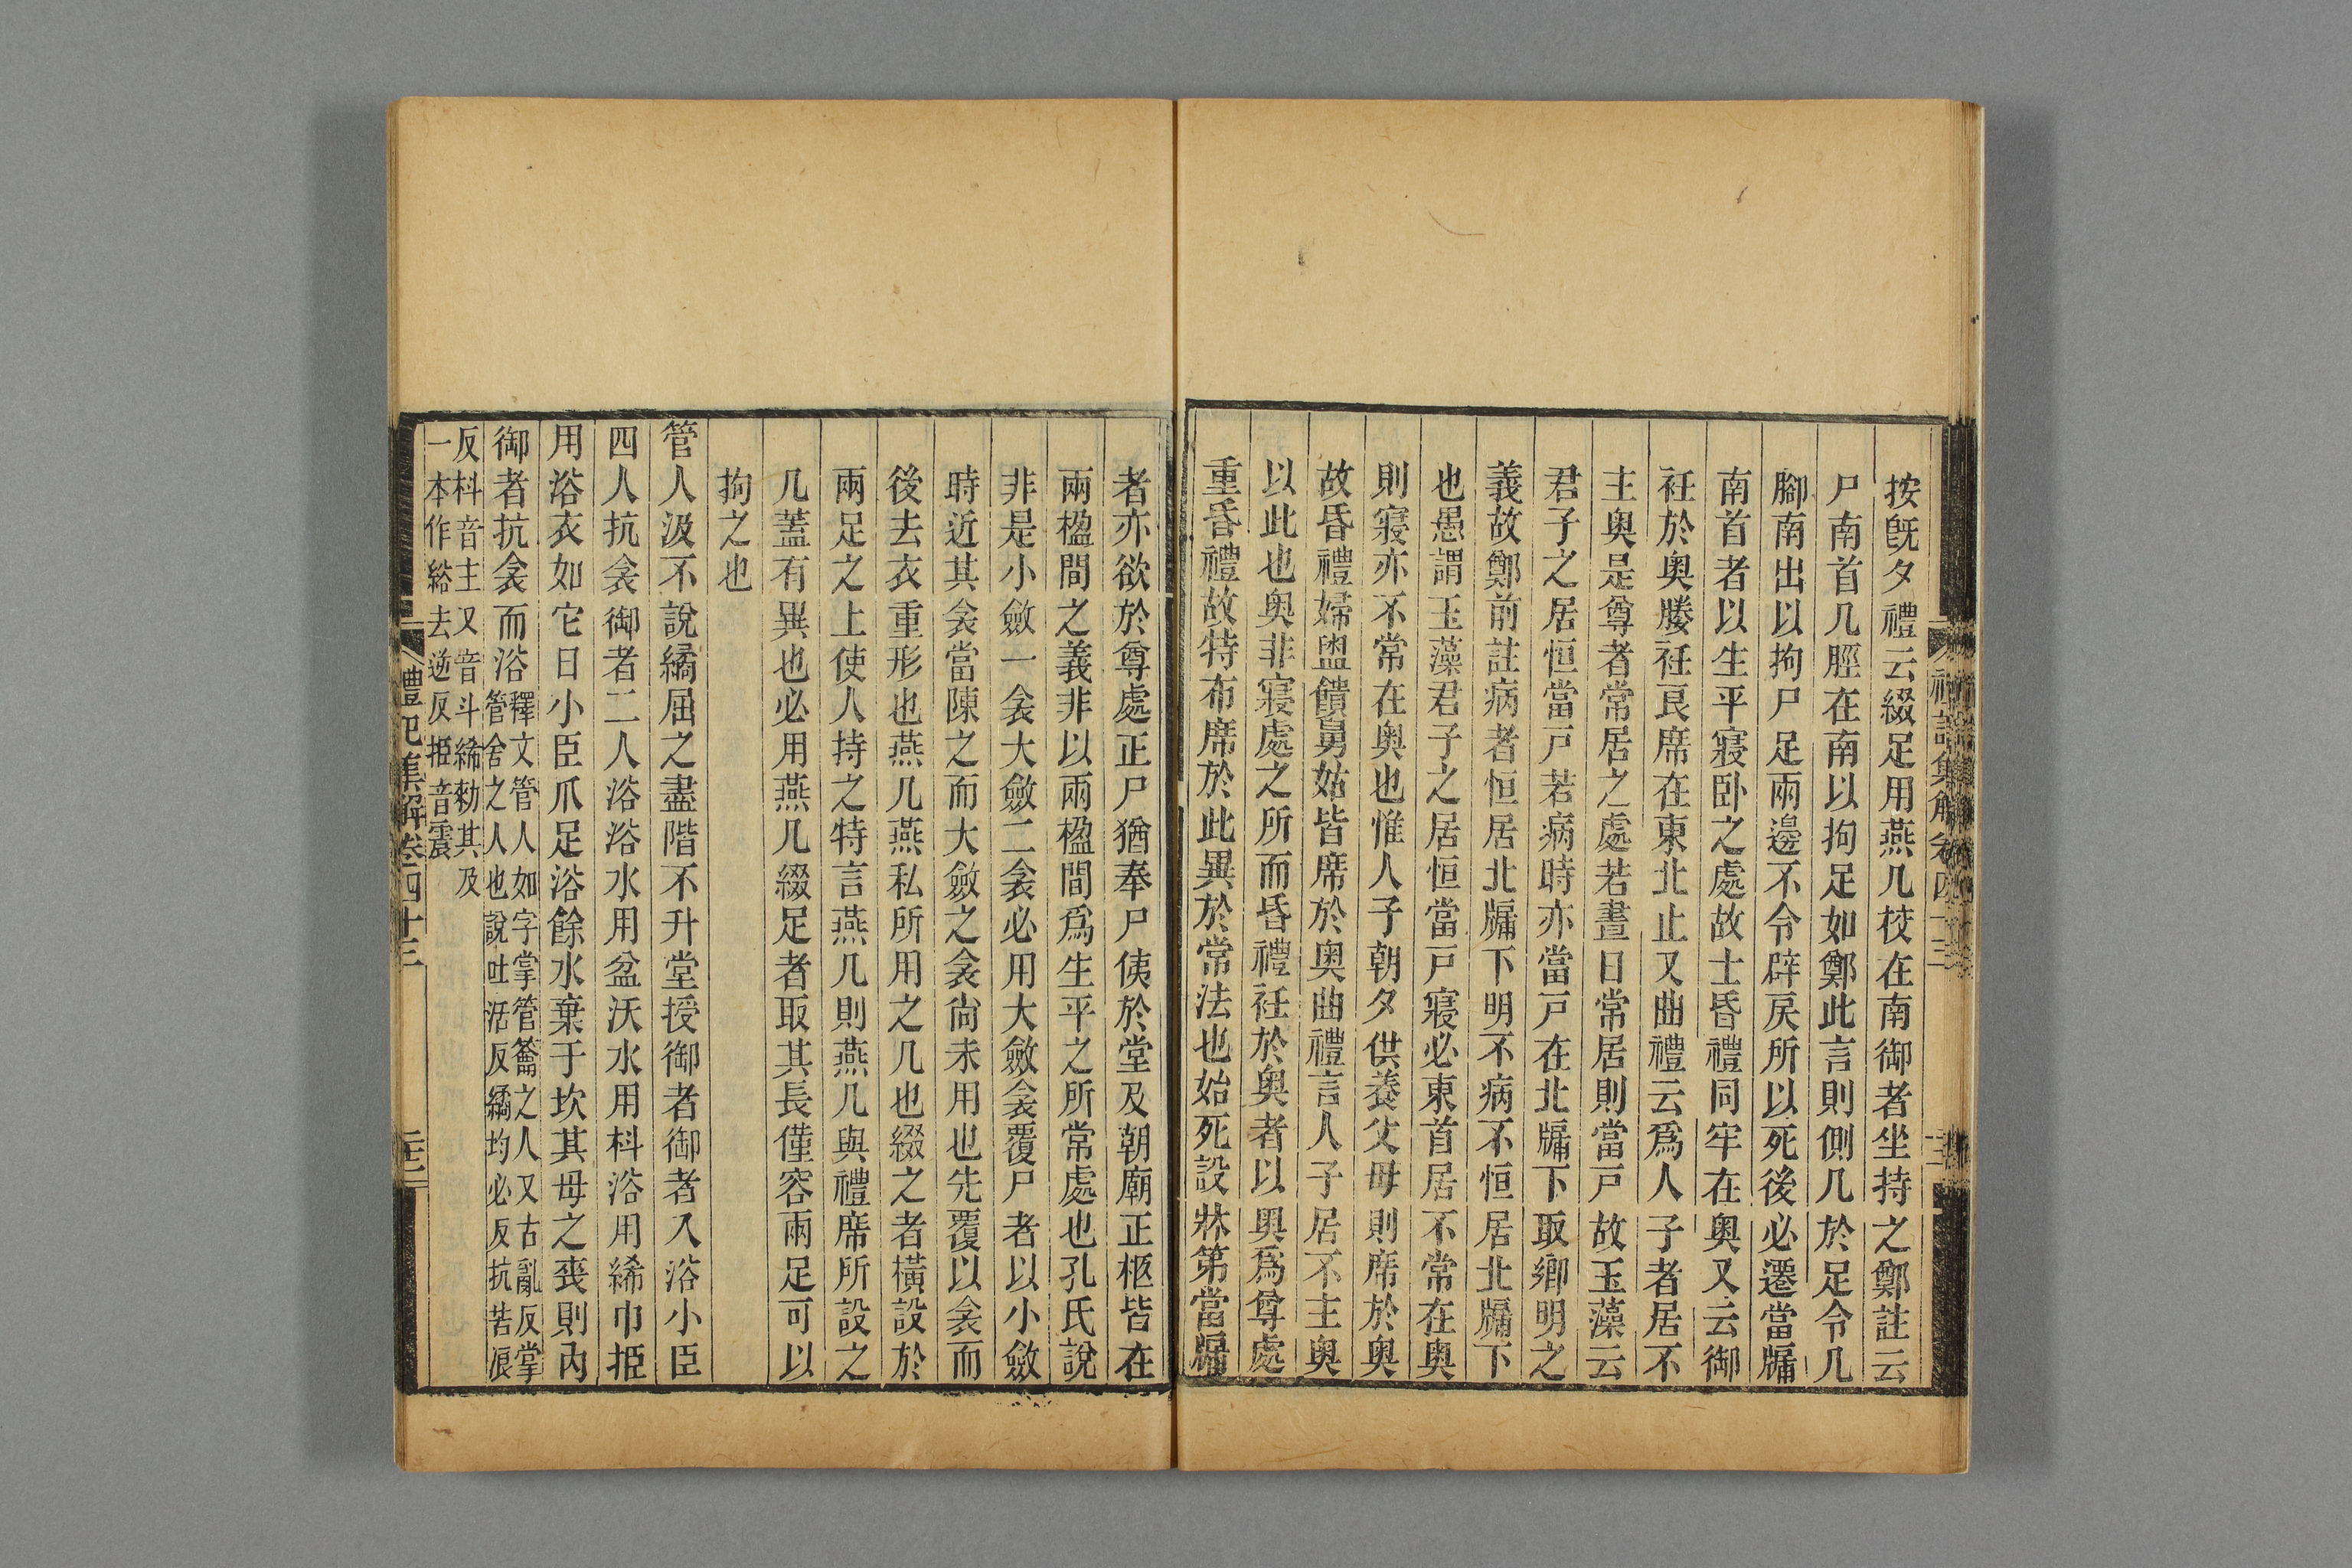 按旣夕禮云綴足用燕几校在南御者坐持之鄭註云
尸南首几脛在南以拘足如鄭此言則側几於足令几
腳南出以拘尸足兩邊不令辟戾所以死後必遷當牖
南首者以生平寢卧之處故士昏禮同牢在奥又云御
衽於奥媵衽良席在東北止又曲禮云爲人子者居不
主奥是尊者常居之處若晝日常居則當戸故玉藻云
君子之居恒當戸若病時亦當戸在北牖下取鄉明之
義故鄭前註病者恒居北牖下明不病不恒居北牖下
也愚謂玉藻君子之居恒當戸寢必東首居不常在奥
則寢亦不常在奥也惟人子朝夕供養父母則席於奥
故昏禮婦盥饋舅姑皆席於奥曲禮言人子居不主奥
以此也奥非寢處之所而昏禮衽於奥者以奥爲尊處
重昏禮故特布席於此異於常法也始死設牀第當牖
者亦欲於尊處正尸猶奉尸侇於堂及朝廟正柩皆在
兩楹間之義非以兩楹間爲生平之所常處也孔氏說
非是小斂一衾大斂二衾必用大斂衾覆尸者以小斂
時近其衾當陳之而大斂之衾尙未用也先覆以衾而
後去衣重形也燕几燕私所用之几也綴之者橫設於
兩足之上使人持之特言燕几則燕几與禮席所設之
几蓋有異也必用燕几綴足者取其長僅容兩足可以
拘之也
管人汲不說繘屈之盡階不升堂授御者御者入浴小臣
四人抗衾御者二人浴浴水用盆沃水用枓浴用絺巾挋
用浴衣如它日小臣爪足浴餘水棄于坎其母之喪則內
御者抗衾而浴釋文管人如字掌管籥之人又古亂反掌
管舍之人也說吐活反繘均必反抗苦浪
反枓音主又音斗絺勑其反
一本作綌去逆反挋音震
禮記集解卷四十三